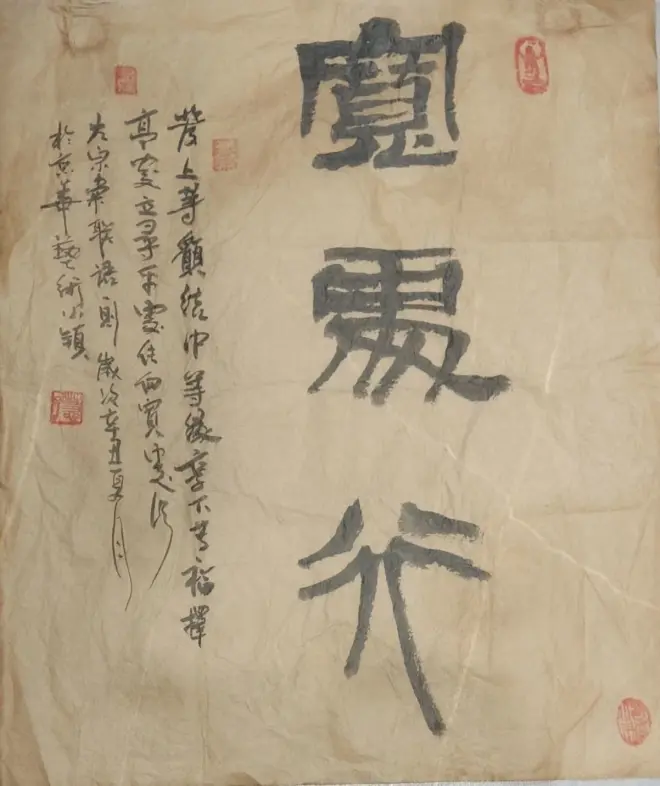 寬處行
發上等願結中等緣享下等福擇
高處立尋平處住向寬處行
左宗棠聯語則歲次辛丑夏月
於京華藝術小